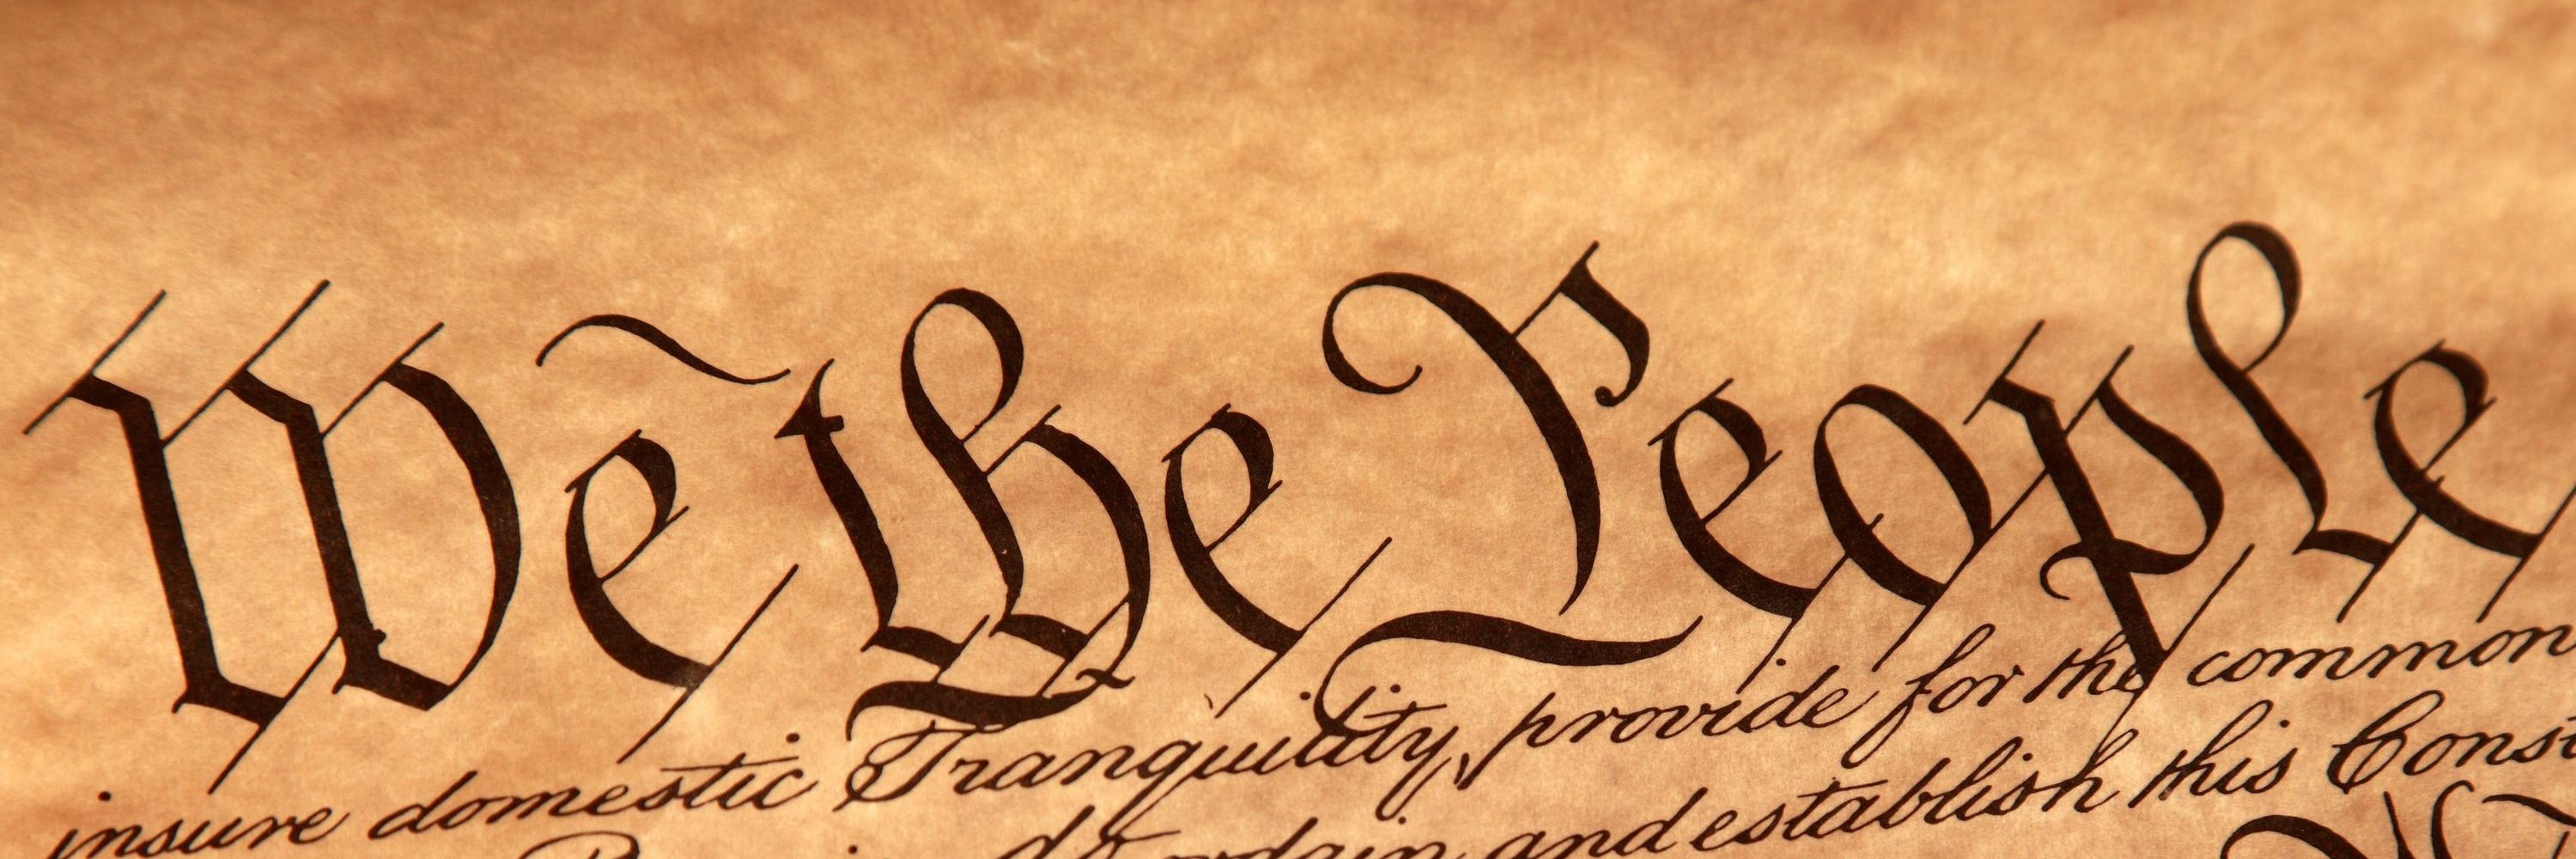 We the People
insure domestic Tranquility, provide for the common
do ordain and establish this Const